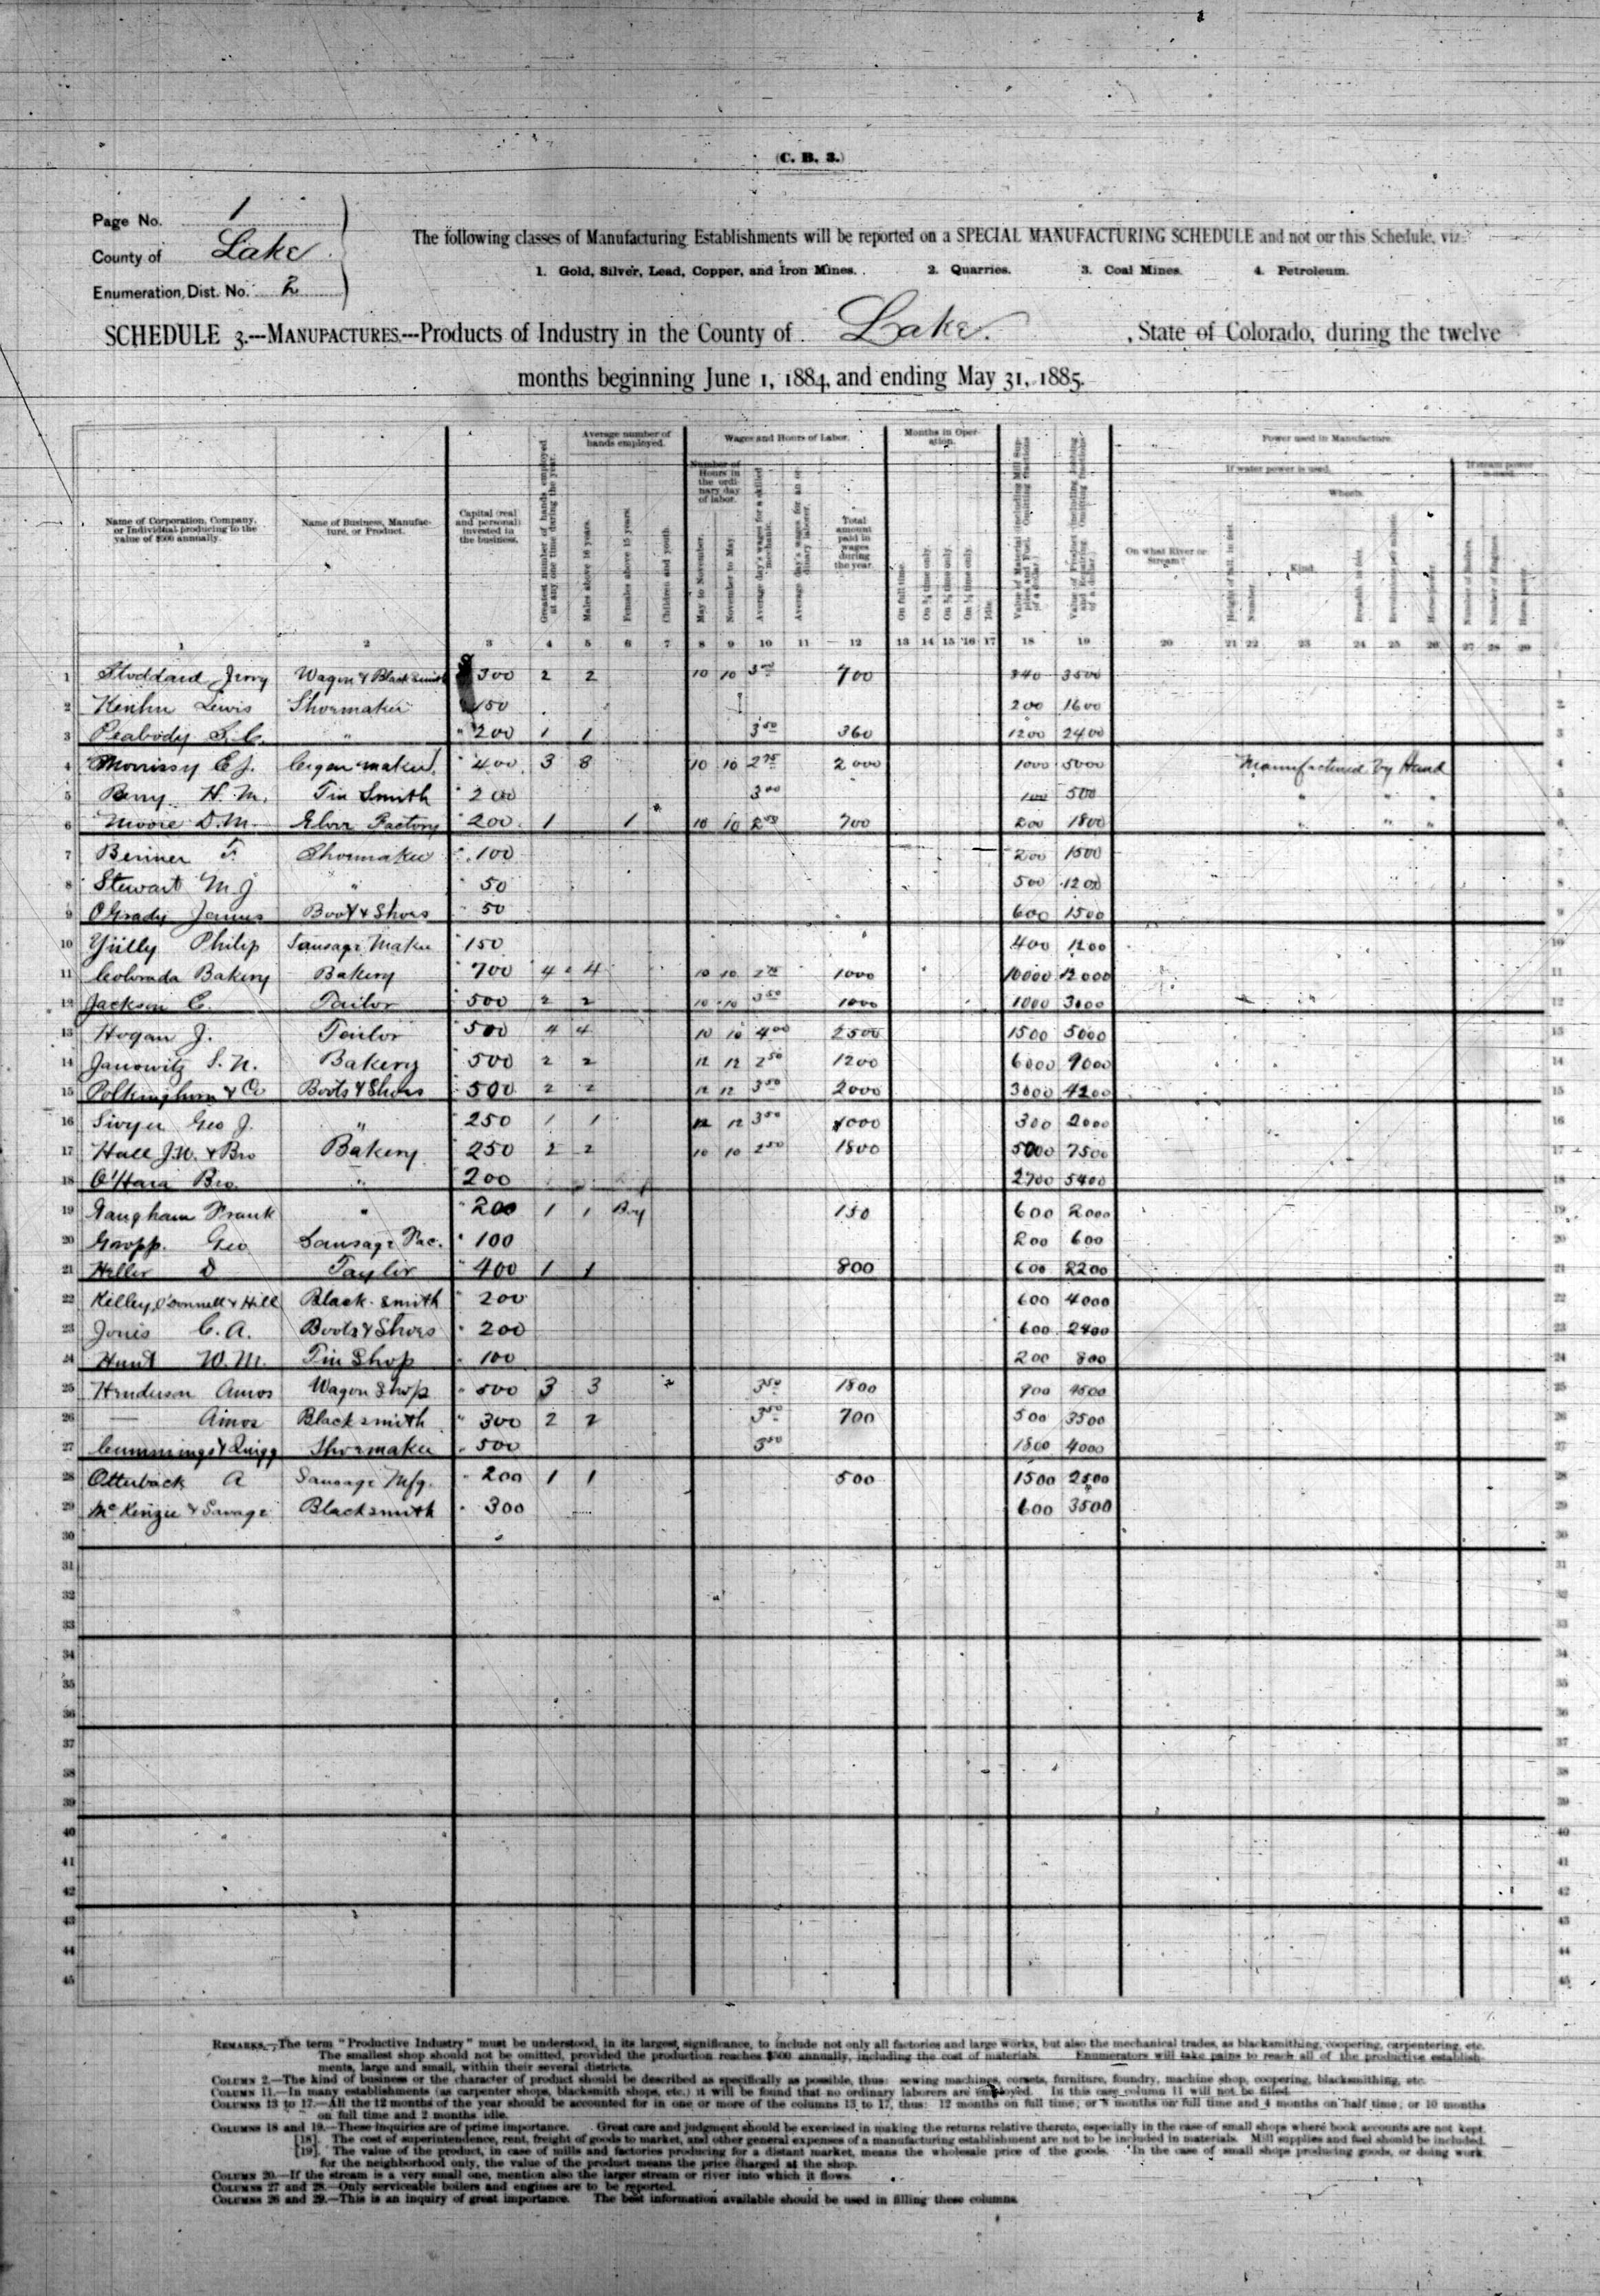 (C. B. 3.)
Page No. 1
County of Lake
Enumeration, Dist. No. 2
The following classes of Manufacturing Establishments will be reported on a SPECIAL MANUFACTURING SCHEDULE and not on this Schedule, viz:
1. Gold, Silver, Lead, Copper, and Iron Mines. 2. Quarries. 3. Coal Mines. 4. Petroleum.
SCHEDULE 3.—MANUFACTURES.—Products of Industry in the County of Lake, State of Colorado, during the twelve
months beginning June 1, 1884, and ending May 31, 1885.
Name of Corporation, Company, or Individual producing to the value of $500 annually.
Name of Business, Manufacture, or Product.
Capital (real and personal) invested in the business.
Greatest number of hands employed at any one time during the year.
Average number of hands employed.
Males above 16 years.
Females above 15 years.
Children and youth.
Wages and Hours of Labor.
Number of Hours in the ordinary day of labor.
May to November.
November to May.
Average day's wages for a skilled mechanic.
Average day's wages for an ordinary laborer.
Total amount paid in wages during the year.
Months in Operation.
On full time.
On ¾ time only.
On ½ time only.
Idle.
Value of Material (including Mill Supplies and Fuel. Omitting fractions of a dollar.)
Value of Product (including Jobbing and Repairing. Omitting fractions of a dollar.)
Power used in Manufacture.
If water power is used.
If steam power is used.
On what River or Stream?
Height of fall, in feet.
Wheels.
Number.
Kind.
Breadth in feet.
Revolutions per minute.
Horse-power.
Number of Boilers.
Number of Engines.
Horse power.
1 2 3 4 5 6 7 8 9 10 11 12 13 14 15 16 17 18 19 20 21 22 23 24 25 26 27 28 29
1 Stoddard Jerry Wagon & Blacksmith 300 2 2 10 10 3 00 700 340 3500 1
2 Lewis Shoemaker 150 200 1600 2
3 Peabody S. C. " 200 1 1 3 50 360 1200 2400 3
4 Morrissy C. J. Cigar maker 400 3 8 10 10 2 75 2000 1000 5000 Manufactured by Hand 4
5 Berry H. M. Tin Smith 200 3 00 100 500 " " " 5
6 Moore D. M. Factory 200 1 1 10 10 2 00 700 200 1800 " " " 6
7 F. Shoemaker 100 200 1500 7
8 Stewart M J " 50 500 1200 8
9 O'Grady James Boot & Shoes 50 600 1500 9
10 Philip Sausage Maker 150 400 1200 10
11 Colorado Bakery Bakery 700 4 4 10 10 1000 10000 12000 11
12 Jackson C. Tailor 500 2 2 10 10 3 50 1000 1000 3000 12
13 Hogan J. Tailor 500 4 4 10 10 4 00 2500 1500 5000 13
14 Janowitz S. N. Bakery 500 2 2 12 12 2 50 1200 6000 9000 14
15 Polkinghorn & Co Boots & Shoes 500 2 2 12 12 3 50 2000 3000 4200 15
16 Geo J. " 250 1 1 12 12 3 50 1000 300 2000 16
17 Hall J. W. & Bro Bakery 250 2 2 10 10 2 50 1800 5000 7500 17
18 O'Hara Bro. " 200 2700 5400 18
19 Gaugham Frank " 200 1 1 Boy 150 600 2000 19
20 Gropp. Geo Sausage Fac. 100 200 600 20
21 Heller D Taylor 400 1 1 800 600 2200 21
22 Kelley, O'Donnell & Hill Black smith 200 600 4000 22
23 Jones C. A. Boots & Shoes 200 600 2400 23
24 Hunt W. M. Tin Shop 100 200 800 24
25 Henderson Amos Wagon Shop 500 3 3 3 50 1800 900 4500 25
26 — Amos Blacksmith 300 2 2 3 50 700 500 3500 26
27 Cummings & Quigg Shoemaker 500 3 50 1800 4000 27
28 Otterback A Sausage Mfg. 200 1 1 500 1500 2500 28
29 McKenzie & Savage Blacksmith 300 600 3500 29
30 30
31 31
32 32
33 33
34 34
35 35
36 36
37 37
38 38
39 39
40 40
41 41
42 42
43 43
44 44
45 45
REMARKS.—The term "Productive Industry" must be understood, in its largest significance, to include not only all factories and large works, but also the mechanical trades, as blacksmithing, coopering, carpentering, etc.
The smallest shop should not be omitted, provided the production reaches $500 annually, including the cost of materials. Enumerators will take pains to reach all of the productive establish-
ments, large and small, within their several districts.
COLUMN 2.—The kind of business or the character of product should be described as specifically as possible, thus: sewing machines, corsets, furniture, foundry, machine shop, coopering, blacksmithing, etc.
COLUMN 11.—In many establishments (as carpenter shops, blacksmith shops, etc.) it will be found that no ordinary laborers are employed. In this case column 11 will not be filled.
COLUMNS 13 to 17.—All the 12 months of the year should be accounted for in one or more of the columns 13 to 17, thus: 12 months on full time; or 8 months on full time and 4 months on half time; or 10 months
on full time and 2 months idle.
COLUMNS 18 and 19.—These inquiries are of prime importance. Great care and judgment should be exercised in making the returns relative thereto, especially in the case of small shops where book accounts are not kept.
[18]. The cost of superintendence, rent, freight of goods to market, and other general expenses of a manufacturing establishment are not to be included in materials. Mill supplies and fuel should be included.
[19]. The value of the product, in case of mills and factories producing for a distant market, means the wholesale price of the goods. In the case of small shops producing goods, or doing work
for the neighborhood only, the value of the product means the price charged at the shop.
COLUMN 20.—If the stream is a very small one, mention also the larger stream or river into which it flows.
COLUMNS 27 and 28.—Only serviceable boilers and engines are to be reported.
COLUMNS 26 and 29.—This is an inquiry of great importance. The best information available should be used in filling these columns.